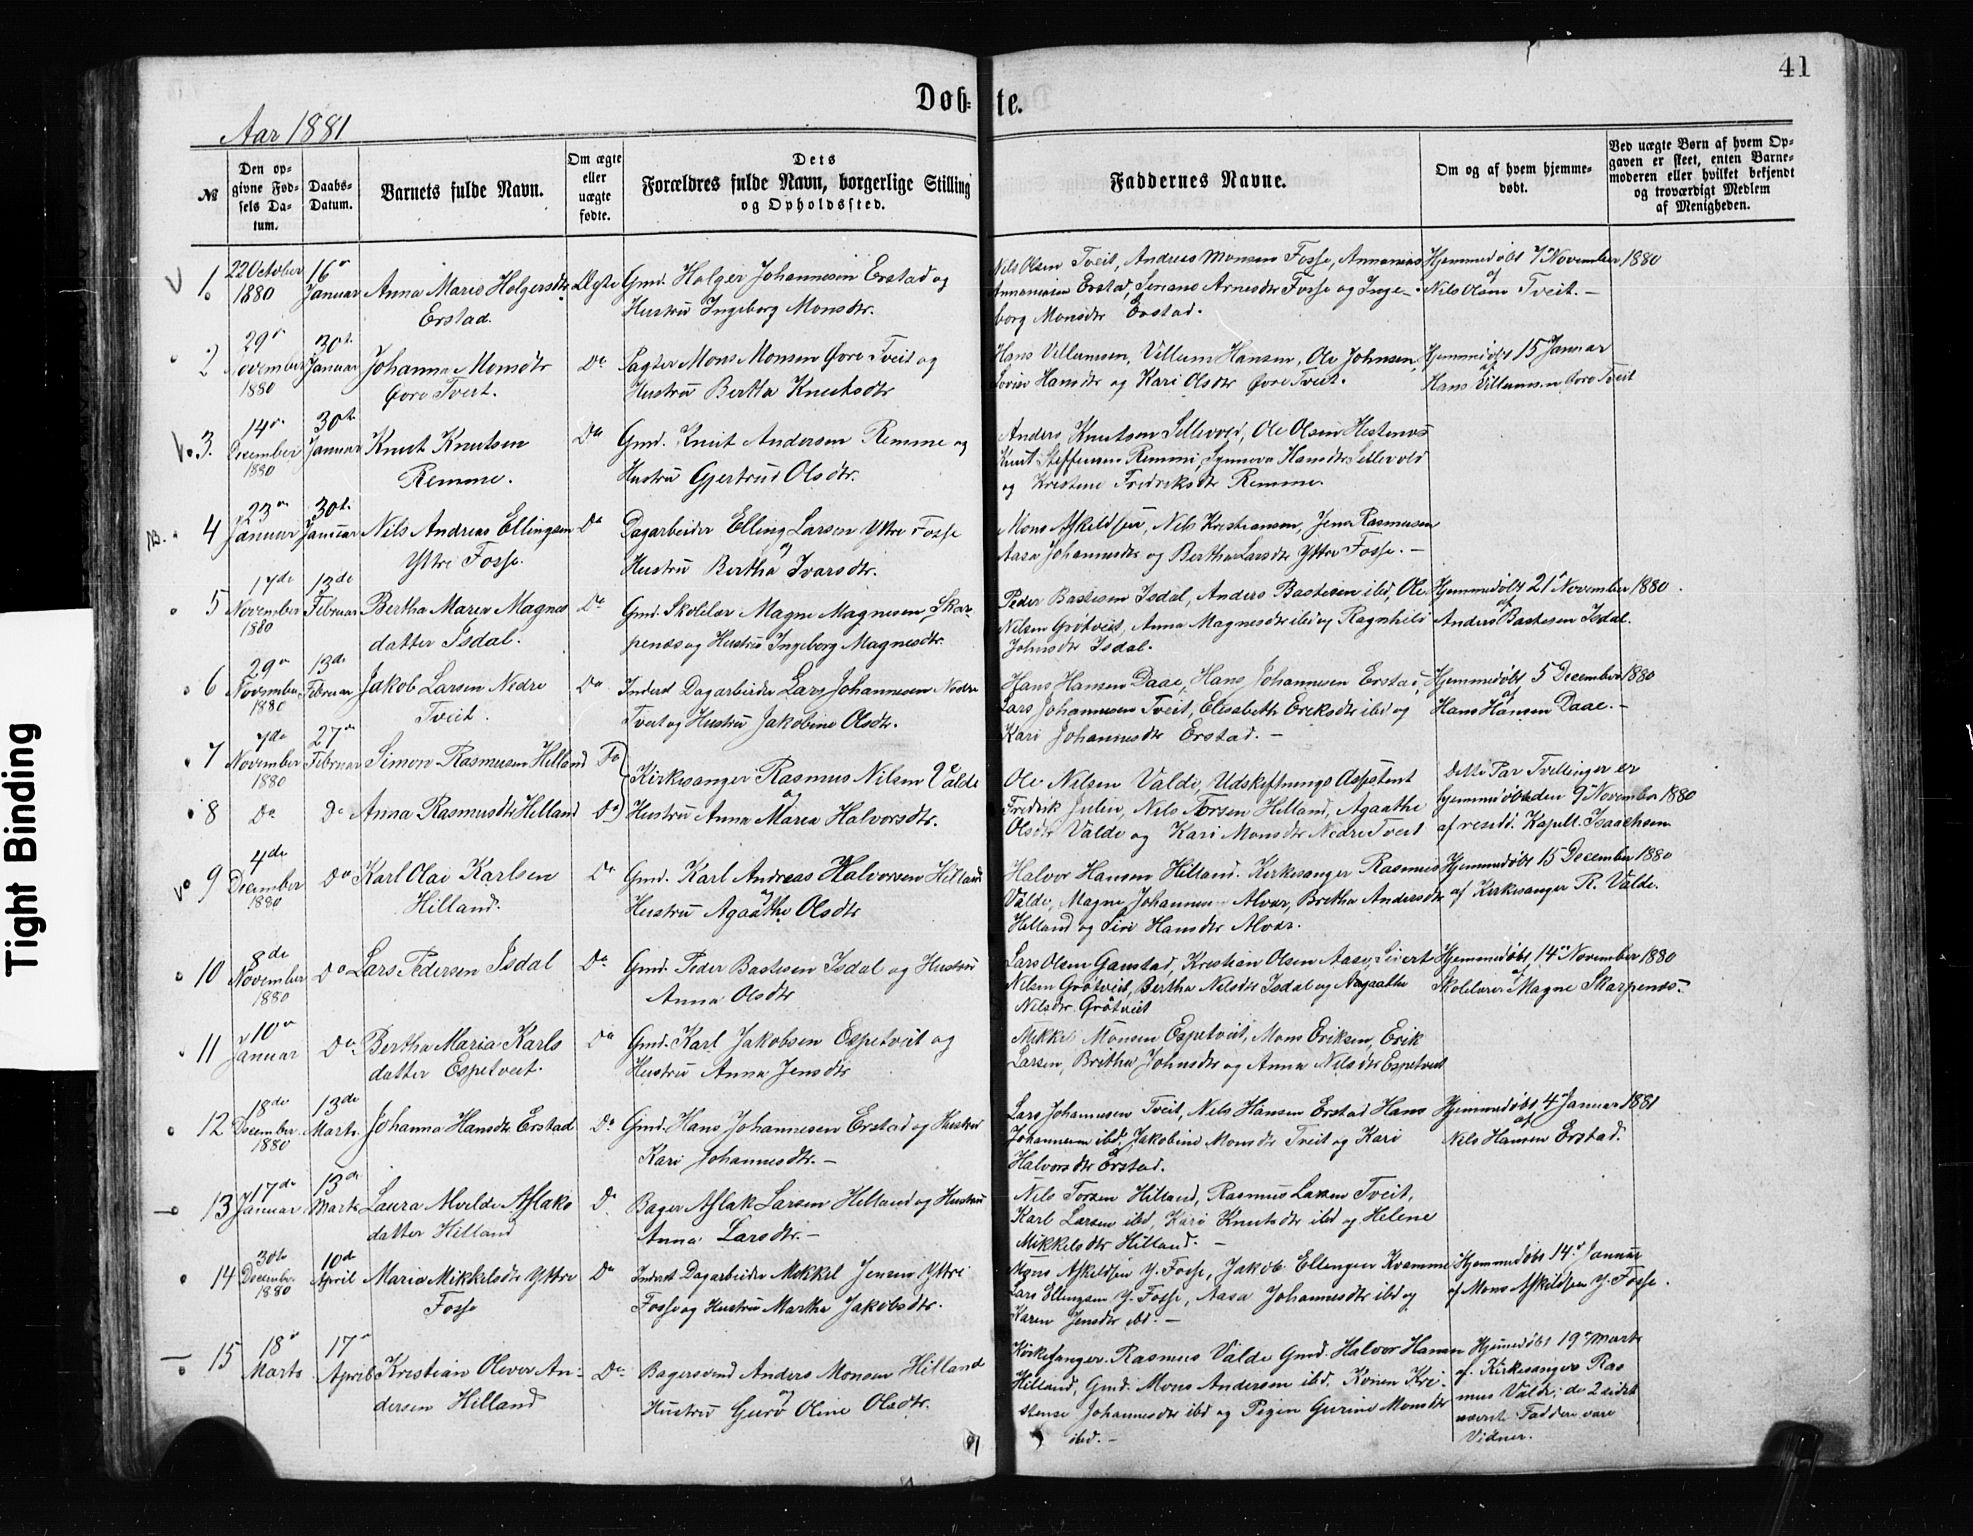 41
Døb-te.
Aar 1881
Tight Binding
№
Den op-
givne Fød-
sels Da-
tum.
Daabs-
Datum.
Barnets fulde Navn.
Om ægte
eller
uægte
fødte.
Dets
Forældres fulde Navn, borgerlige Stilling
og Opholdssted.
Faddernes Navne.
Om og af hvem hjemme-
døbt.
Ved uægte Børn af hvem Op-
gaven er skeet, enten Barne-
moderen eller hvilket bekjendt
og troværdigt Medlem
af Menigheden.
1. 22 October 1880 16 Januar Anna Marie Holgersdtr Erstad. Ægte
Gmd. Holger Johannesen Erstad og
Hustru Ingeborg Monsdtr.
Nils Olsen Tveit, Andreas Monsen Fosse, Annanias
Annaniasen Erstad, Arnesdtr Fosse og Inge-
borg Monsdtr Erstad.
Hjemmedøbt 7 November 1880
af Nils Olsen Tveit.
2 29 November 1880 30t. Januar Johanna Monsdtr Øvre Tveit. Do
Pagter Mons Monsen Øvre Tveit og
Hustru Bertha Knutsdtr
Hans Villumsen, Villum Hansen, Ole Johnsen,
Hansdtr og Kari Olsdtr Øvre Tveit.
Hjemmedøbt 15 Januar
af Hans Villumsen Øvre Tveit
3. 14 December 1880 30t. Januar Knut Knutsen Remme. Do
Gmd. Knut Andersen Remme og
Hustru Gjertrud Olsdtr.
Anders Knutsen Sellevold, Ole Olsen
Knut Steffensen Remme, Synneva Hansdtr Sellevold
og Kristene Fredriksdtr Remme.
NB. 4 23 Januar 30t. Januar Nils Andreas Ellingsen Ytre Fosse. Do
Dagarbeider Elling Larsen Ytre Fosse
og Hustru Bertha Ivarsdtr.
Mons Askeldsen, Nils Kristiansen, Jens Rasmusen
Aasa Johannesdtr og Bertha Larsdtr Yttre Fosse. -
5 17de November 1880 13de Februar Bertha Maren Magnes
datter Isdal. Do
Gmd. Skolelær Magne Magnesen Skar-
penæs og Hustru Ingeborg Magnesdtr.
Peder Bastesen Isdal, Anders Bastesen ibid, Ole
Nilsen Grötveit, Anna Magnesdtr ibid og Ragnhild
Johnsdtr Isdal.
Hjemmedøbt 21 November 1880
af Anders Bastesen Isdal.
6 29 November 1880 13de Februar Jakob Larsen Nedre
Tveit. Do
Inderst Dagarbeider Lars Johannesen Nedre
Tveit og Hustru Jakobine Olsdtr.
Hans Hansen Daae, Hans Johannesen Erstad,
Lars Johannesen Tveit, Elisabeth Eriksdtr ibid og
Kari Johannesdtr Erstad. -
Hjemmedøbt 5 December 1880
af Hans Hansen Daae. -
7 7de November 1880 27 Februar Simon Rasmusen Hilland Do
8 Do Do Anna Rasmusdtr Hilland Do
Kirkesanger Rasmus Nilsen Valde
og Hustru Anna Maria Halvorsdtr.
Ole Nilsen Valde, Udskiftnings Assistent
Fredrik Julin, Nils Torsen Hilland, Agaathe
Olsdtr Valde og Kari Monsdtr Nedre Tveit
Dette Par Tvillinger er
hjemmedøbt den 9 November 1880
af resid. Kapell. Isaachsen
9 4de December 1880 Do Karl Olai Karlsen
Hilland. Do
Gmd. Karl Andreas Halvorsen Hilland
og Hustru Agaathe Olsdtr
Halvor Hansen Hilland. Kirkesanger Rasmus
Valde, Magne Johannesen Alvær, Bretha Andersdtr
Hilland og Siri Hansdtr Alvær.
Hjemmedøbt 15 December 1880
af Kirkesanger R. Valde.
10 8de November 1880 Do Lars Pedersen Isdal Do
Gmd. Peder Bastesen Isdal og Hustru
Anna Olsdtr
Lars Olsen Gamstad, Kristian Olsen Aase, Sivert
Nilsen Grötveit, Bertha Nilsdtr Isdal og Aagaathe
Nilsdtr Grötveit
Hjemmedøbt 14 November 1880
af Skolelærer Magne Skarpenæs.
11 10 Januar Do Bertha Maria Karls
datter Espetveit. Do
Gmd. Karl Jakobsen Espetveit og
Hustru Anna Jensdtr
Mikkel Monsen Espetveit, Mons Eriksen, Erik
Larsen, Bretha Johnsdtr og Anna Nilsdtr Espetveit
12 18de December 1880 13de Marts. Johanna Hansdtr Erstad Do
Gmd. Hans Johannesen Erstad og Hustru
Kari Johannesdtr. -
Lars Johannesen Tveit, Nils Hansen Erstad Hans
Johannesen ibd, Jakobine Monsdtr Tveit og Kari
Halvorsdtr Erstad.
Hjemmedøbt 4 Januar 1881
af Nils Hansen Erstad.
13 17de Januar 13de Marts Laura Alvilde Aslaks
datter Hilland Do
Bager Aslak Larsen Hilland og Hustru
Anna Larsdtr. -
Nils Torsen Hilland, Rasmus Larsen Tveit,
Karl Larsen ibd, Kari Knutsdtr ibd og Helene
Mikkelsdtr Hilland. -
14 30te December 1880 10de April Maria Mikkelsdtr Yttre
Fosse Do
Inderst Dagarbeider Mikkel Jensen Yttre
Fosse og Hustru Martha Jakobsdtr.
Mons Askeldsen Y. Fosse, Jakob Ellingsen Kvamme
Lars Ellingsen Y. Fosse, Aasa Johannesdtr ibd og
Karen Jensdtr ibd. -
Hjemmedøbt 14. Januar
af Mons Askeldsen Y. Fosse.
15 18 Marts 17 April Kristian Oliver An-
dersen Hilland Do
Bagersvend Anders Monsen Hilland
og Hustru Guro Oline Olsdtr.
Kirkesanger Rasmus Valde Gmd. Halvor Hansen
Hilland, Gmd. Mons Andersen ibd. Konen Kri-
stense Johannesdtr ibd og Pigen Gurine Monsdtr
ibd. -
Hjemmedøbt 19 Marts
af Kirkesanger Ras
mus Valde; de 2 sidst
nævnte Faddere vare
Vidner.